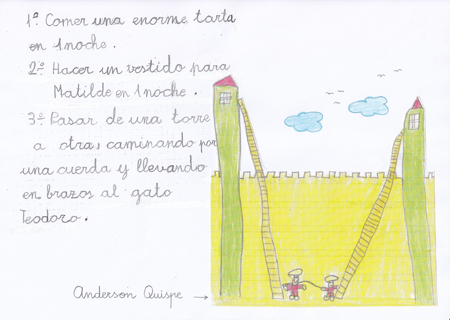 1º Comer una enorme tarta
en 1 noche.
2º. Hacer un vestido para
Matilde en 1 noche.
3º. Pasar de una torre
a otra, caminando por
una cuerda y llevando
en brazos al gato
Teodoro.
Anderson Quispe →